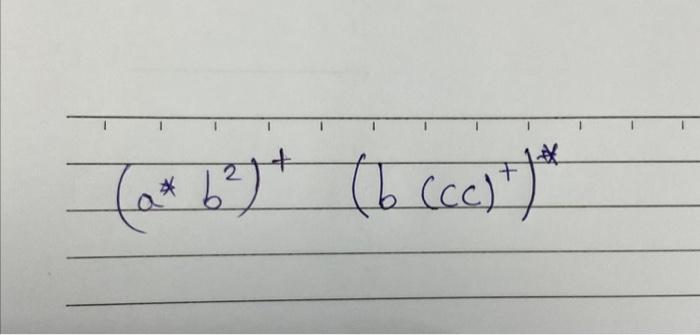 (a* b²)⁺ (b (cc)⁺)*